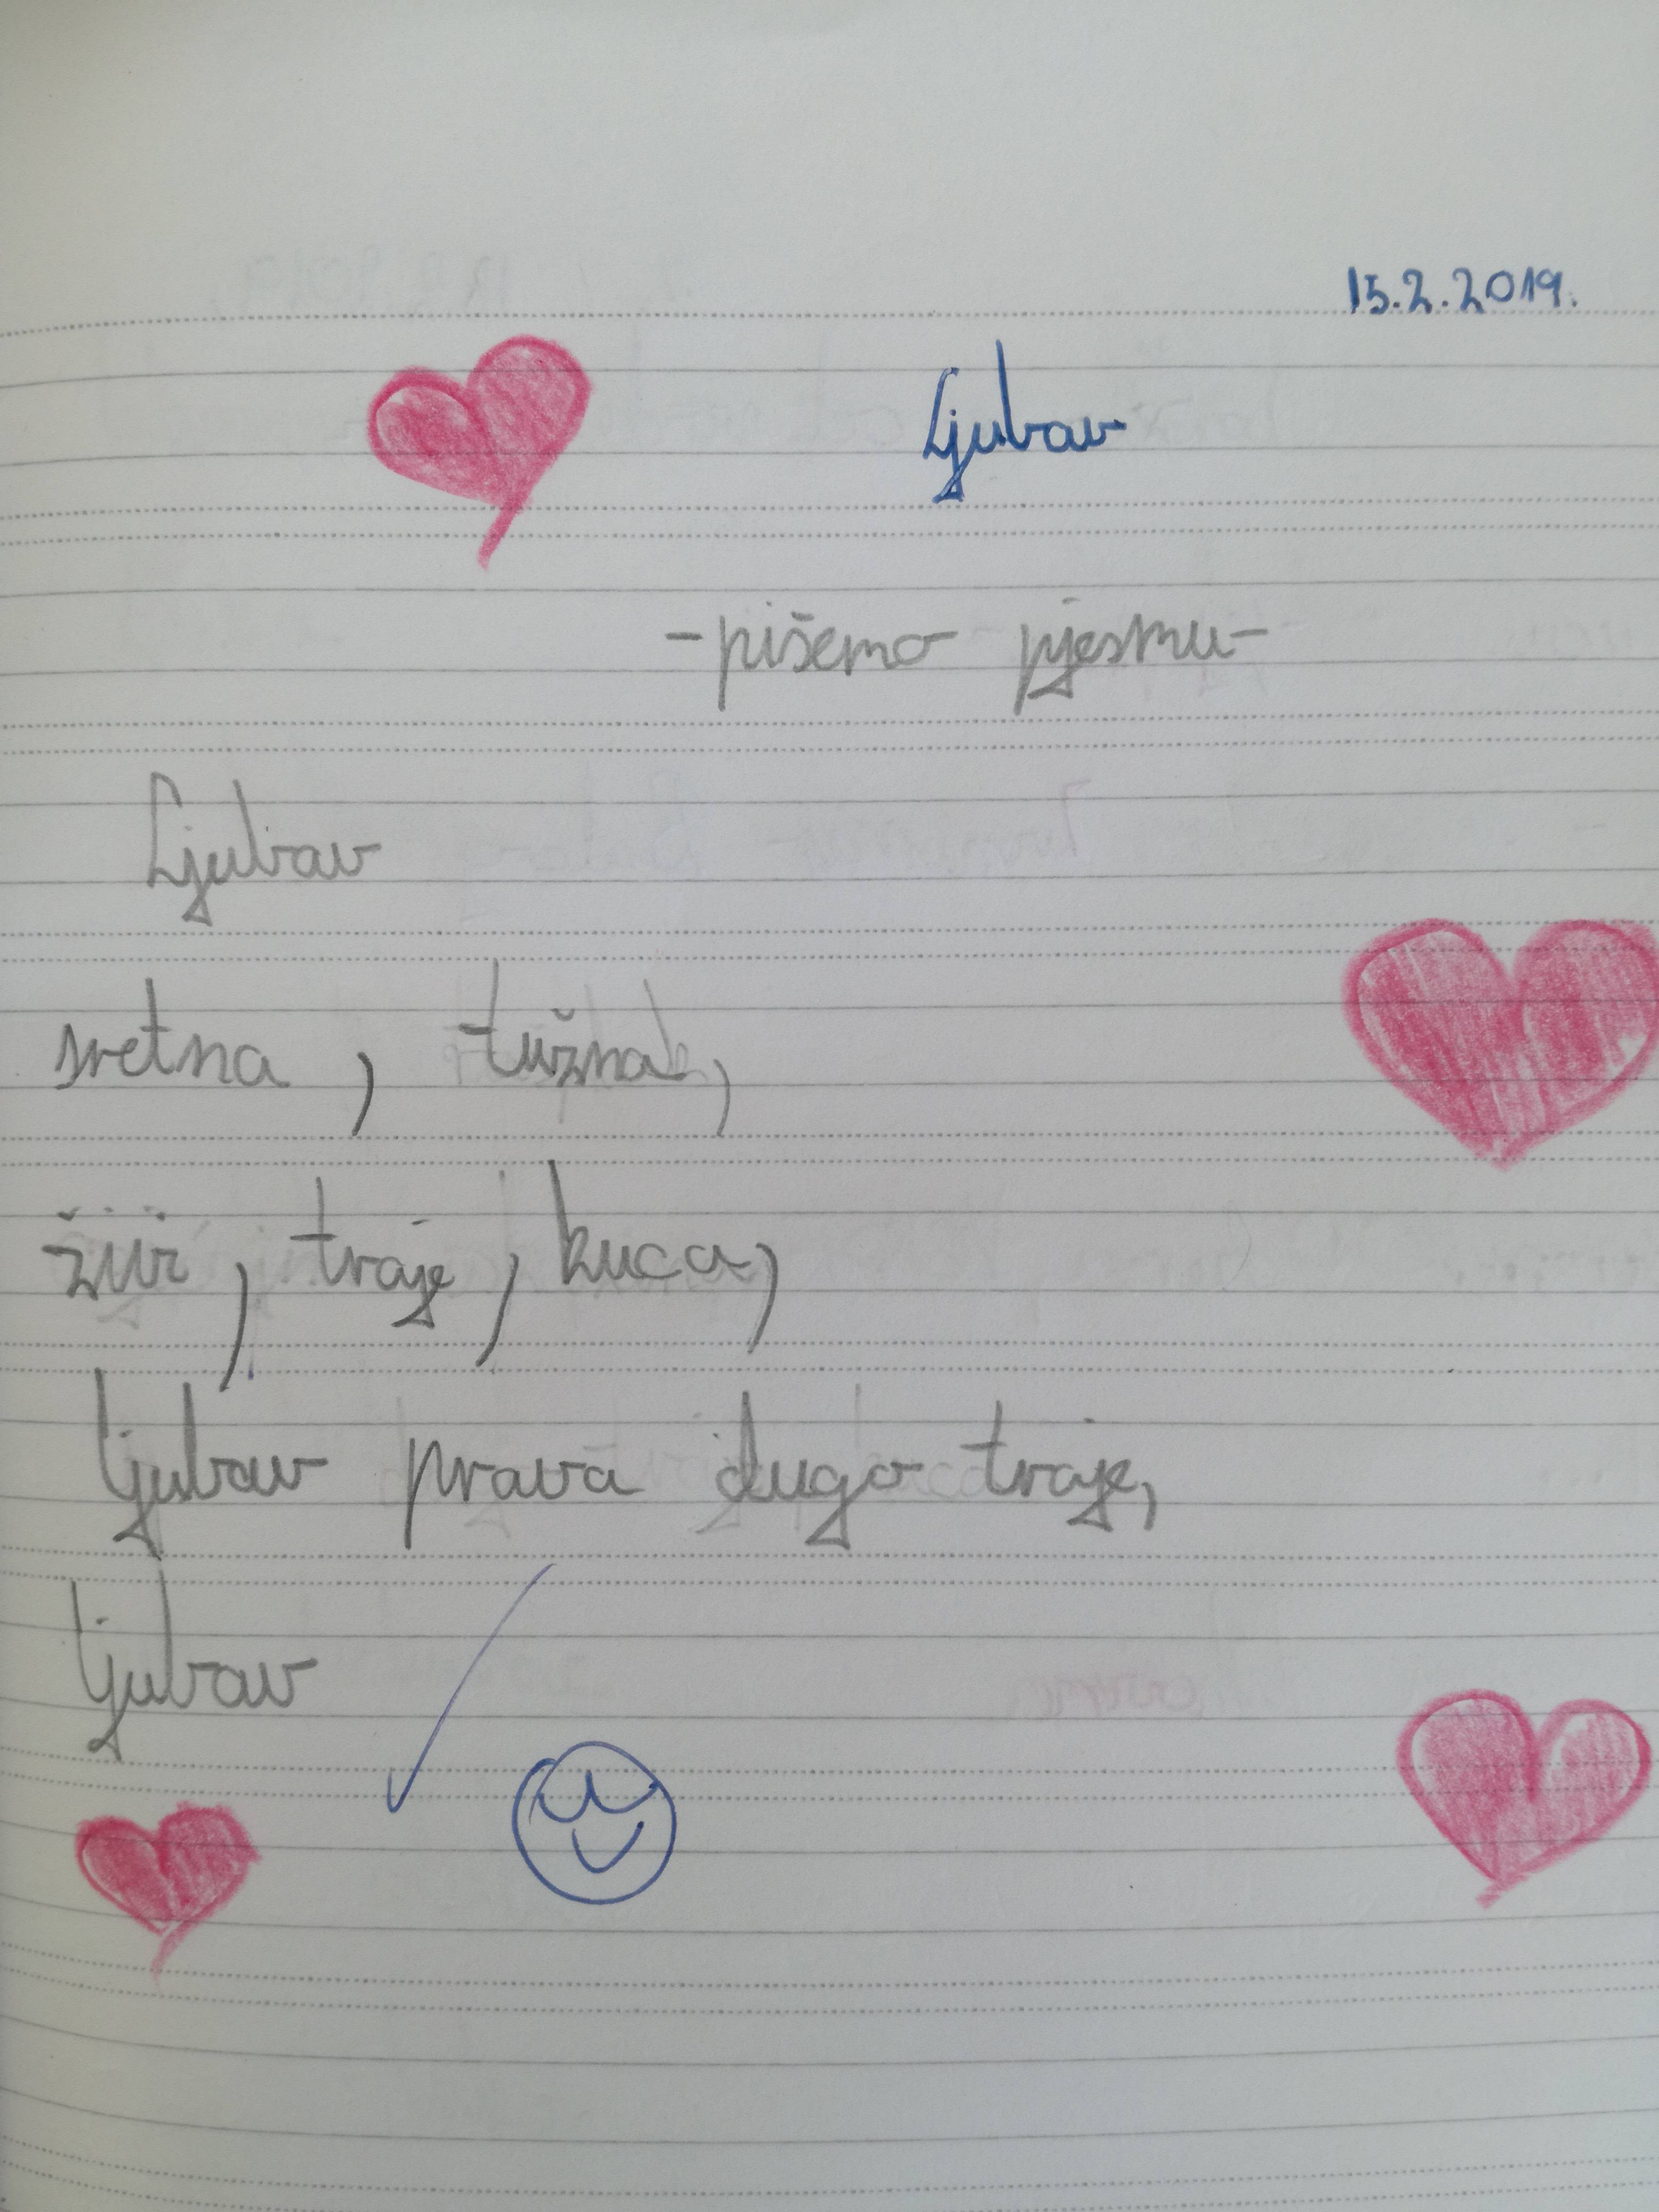 15.2.2019.
Ljubav
-pišemo pjesmu-
Ljubav
sretna, tužna,
živi, traje, kuca,
ljubav prava dugo traje,
ljubav